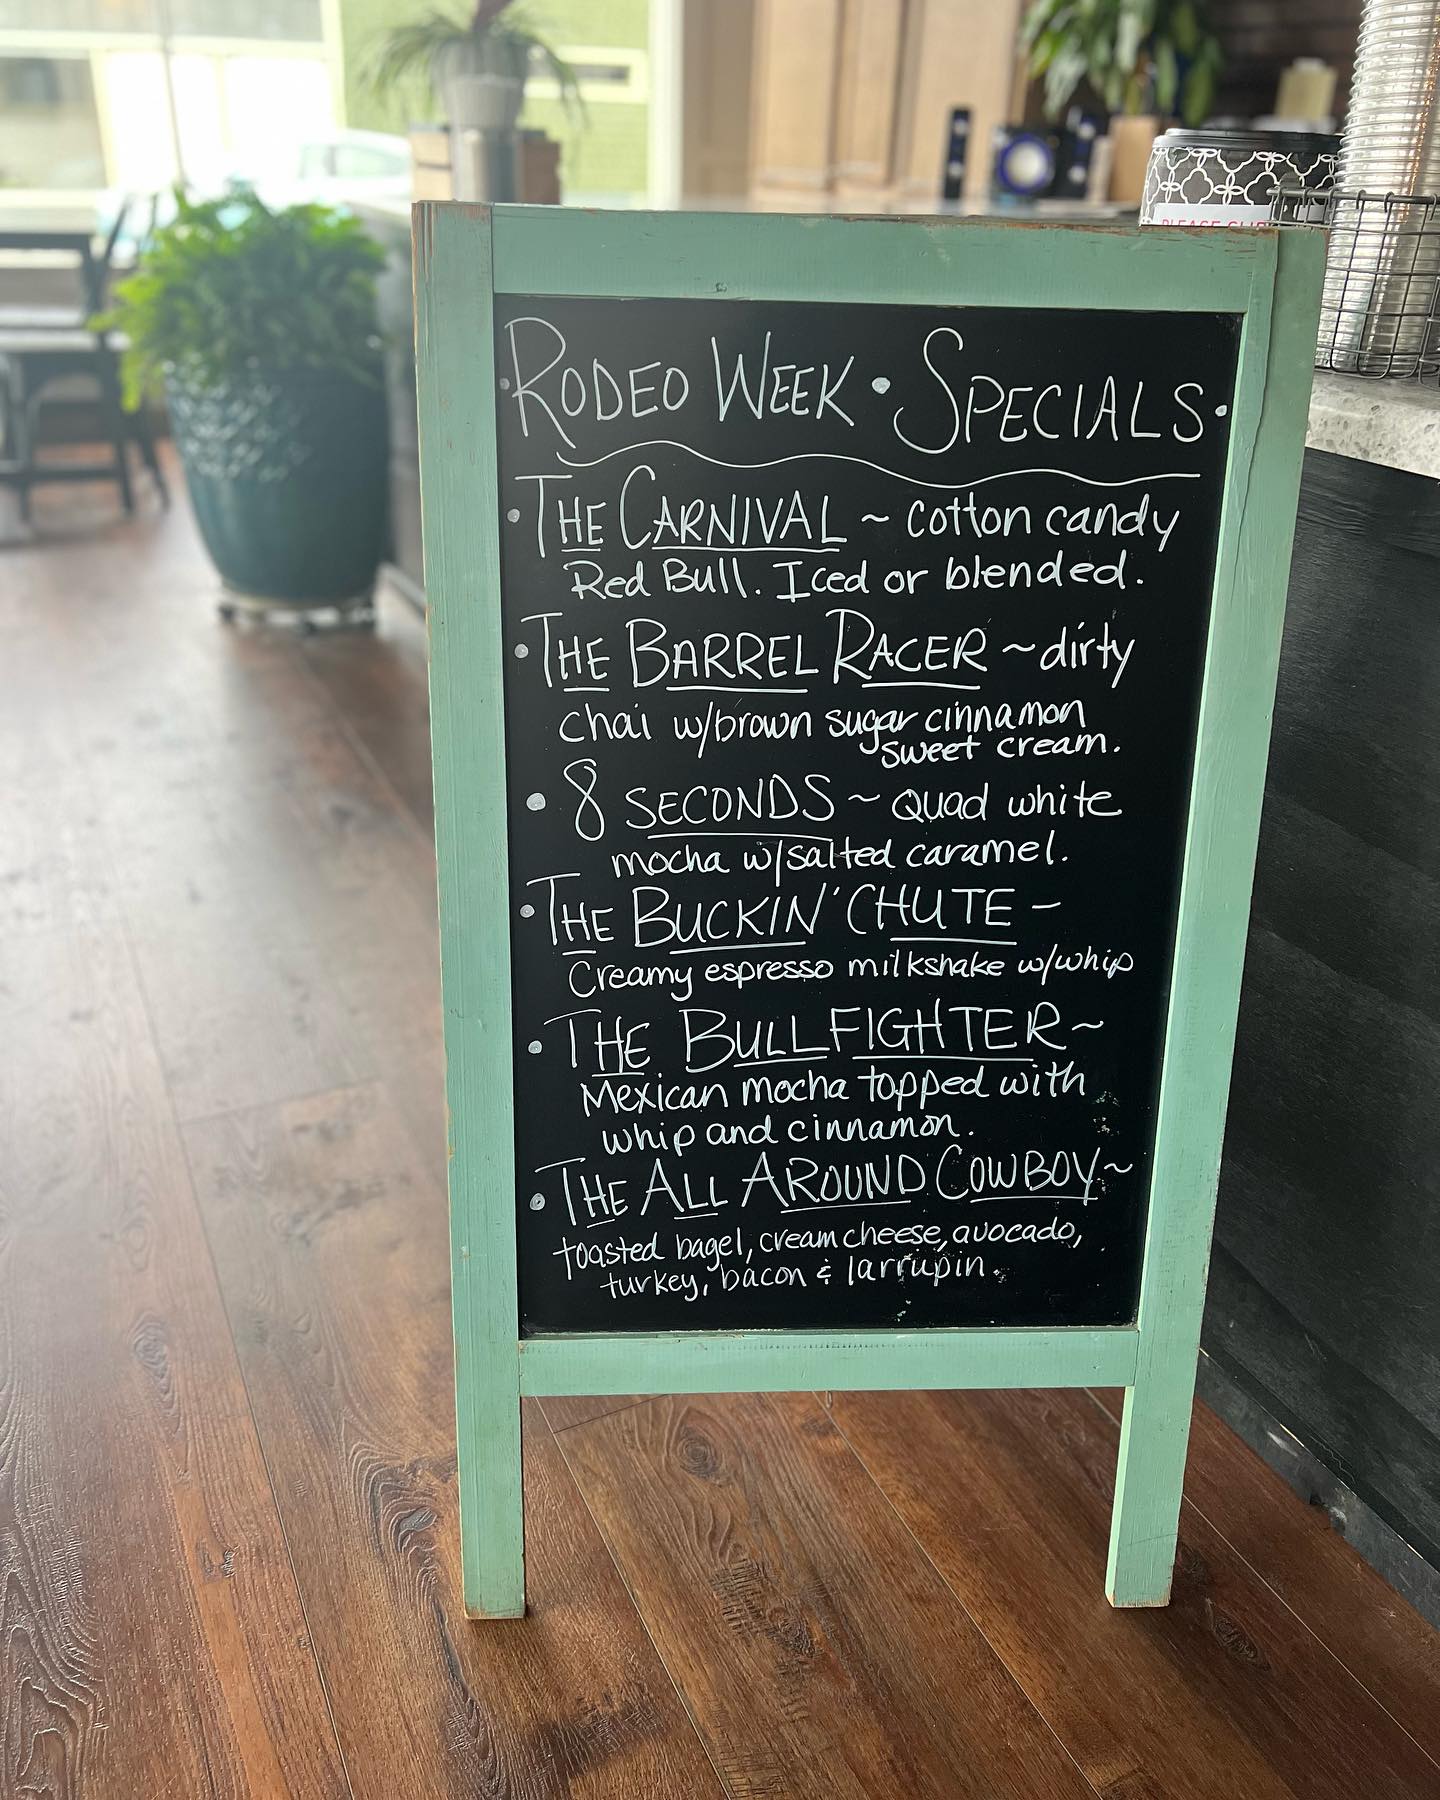 PLEASE
• RODEO WEEK • SPECIALS •
• THE CARNIVAL ~ cotton candy
Red Bull. Iced or blended.
• THE BARREL RACER ~ dirty
chai w/brown sugar cinnamon
sweet cream.
• 8 SECONDS ~ Quad white
mocha w/salted caramel.
• THE BUCKIN' CHUTE -
Creamy espresso milkshake w/whip
• THE BULLFIGHTER ~
Mexican mocha topped with
whip and cinnamon.
• THE ALL AROUND COWBOY ~
toasted bagel, cream cheese, avocado,
turkey, bacon & larrupin.